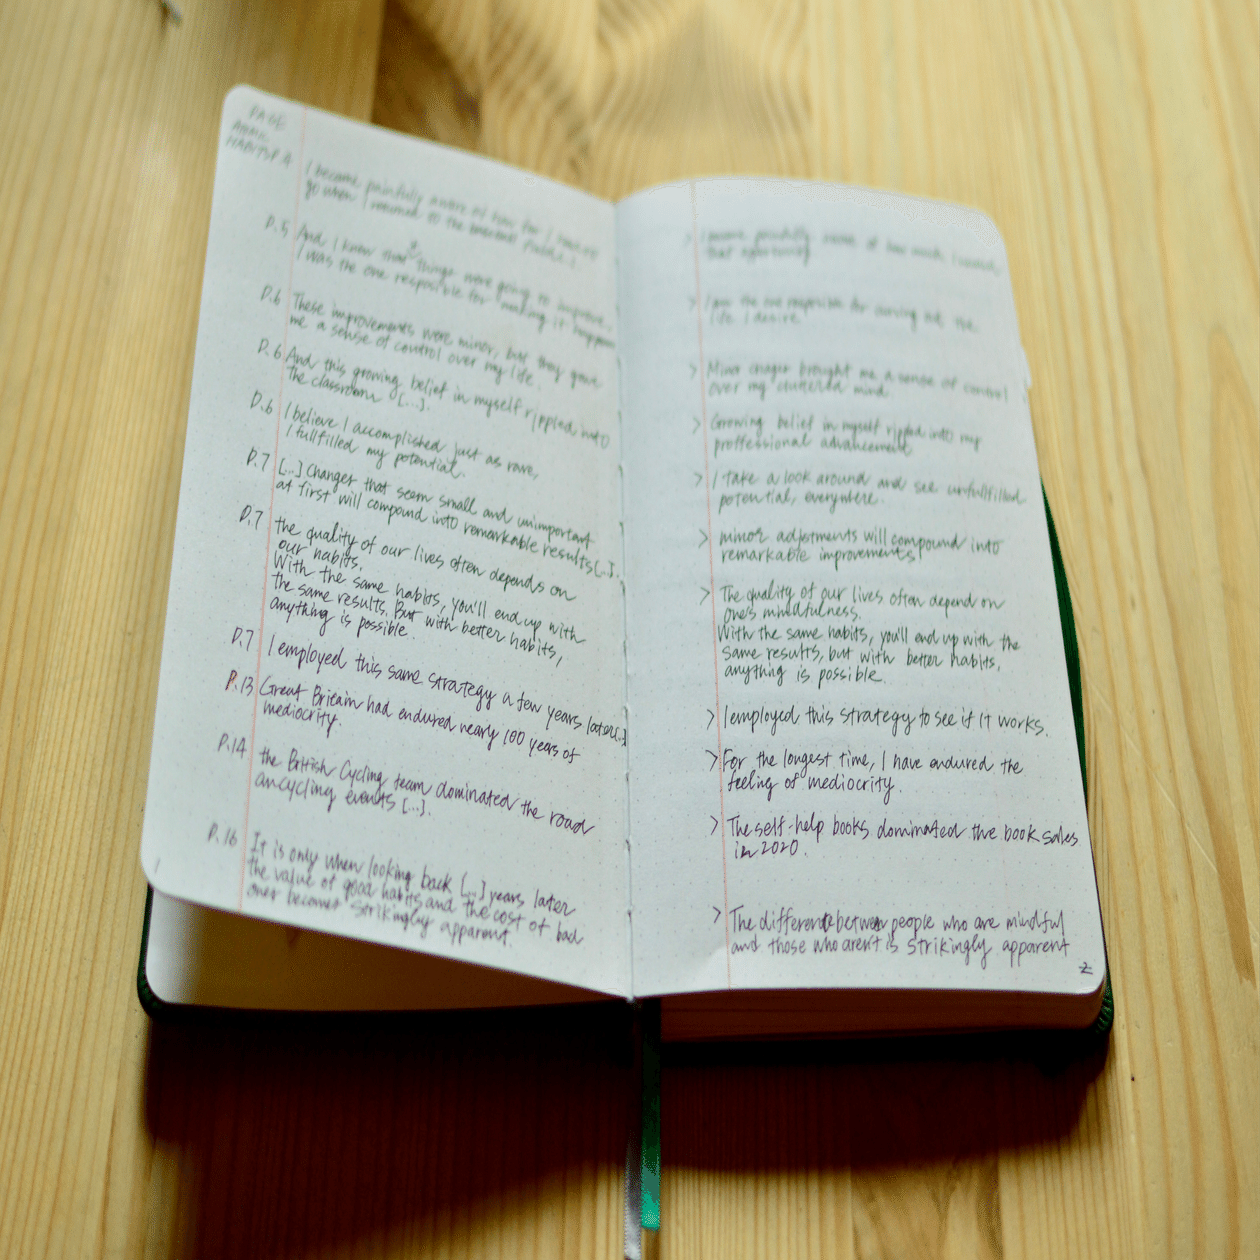 PAGE
HABITS P.4
I became painfully aware of how far I had to
go when I returned to the baseball field [...]
P.5 And I know that things were going to improve,
I was the one responsible for making it happen
P.6 These improvements were minor, but they gave
me a sense of control over my life.
P.6 And this growing belief in myself rippled into
the classroom [...].
P.6 I believe I accomplished just as rare,
I fullfilled my potential.
P.7 [...] Changes that seem small and unimportant
at first will compound into remarkable results [...].
P.7 the quality of our lives often depends on
our habits.
With the same habits, you'll end up with
the same results. But with better habits,
anything is possible.
P.7 I employed this same strategy a few years later [..]
P.13 Great Britain had endured nearly 100 years of
mediocrity.
P.14 the British Cycling team dominated the road
cycling events [...].
P.16 It is only when looking back [...] years later
the value of good habits and the cost of bad
ones becomes strikingly apparent.
1
> I became painfully aware of how much I
that opportunity
> I am the one responsible for carving out the
life I desire.
> Minor changes brought me a sense of control
over my cluttered mind.
> Growing belief in myself rippled into my
proffessional advancement
> I take a look around and see unfullfilled
potential, everywhere.
> minor adjustments will compound into
remarkable improvements
> The quality of our lives often depend on
one's mindfulness.
With the same habits, you'll end up with the
same results, but with better habits,
anything is possible.
> I employed this strategy to see if it works.
> For the longest time, I have endured the
feeling of mediocrity.
> The self-help books dominated the book sales
in 2020.
> The difference between people who are mindful
and those who aren't is strikingly apparent
2